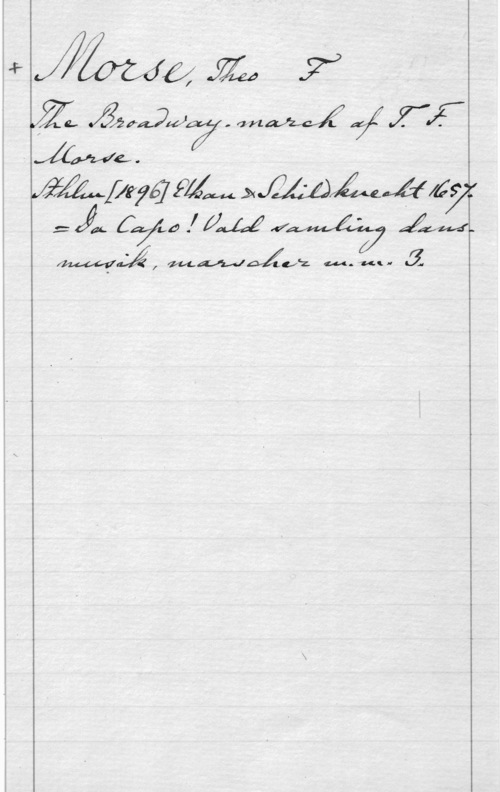 + Morse, Theo F
The Broadway. march af T. F.
Morse.
Sthlm [1896] Elkan & Schildknecht 1657.
= Da Capo! Vald samling dans-
musik, marscher m. m. 3.